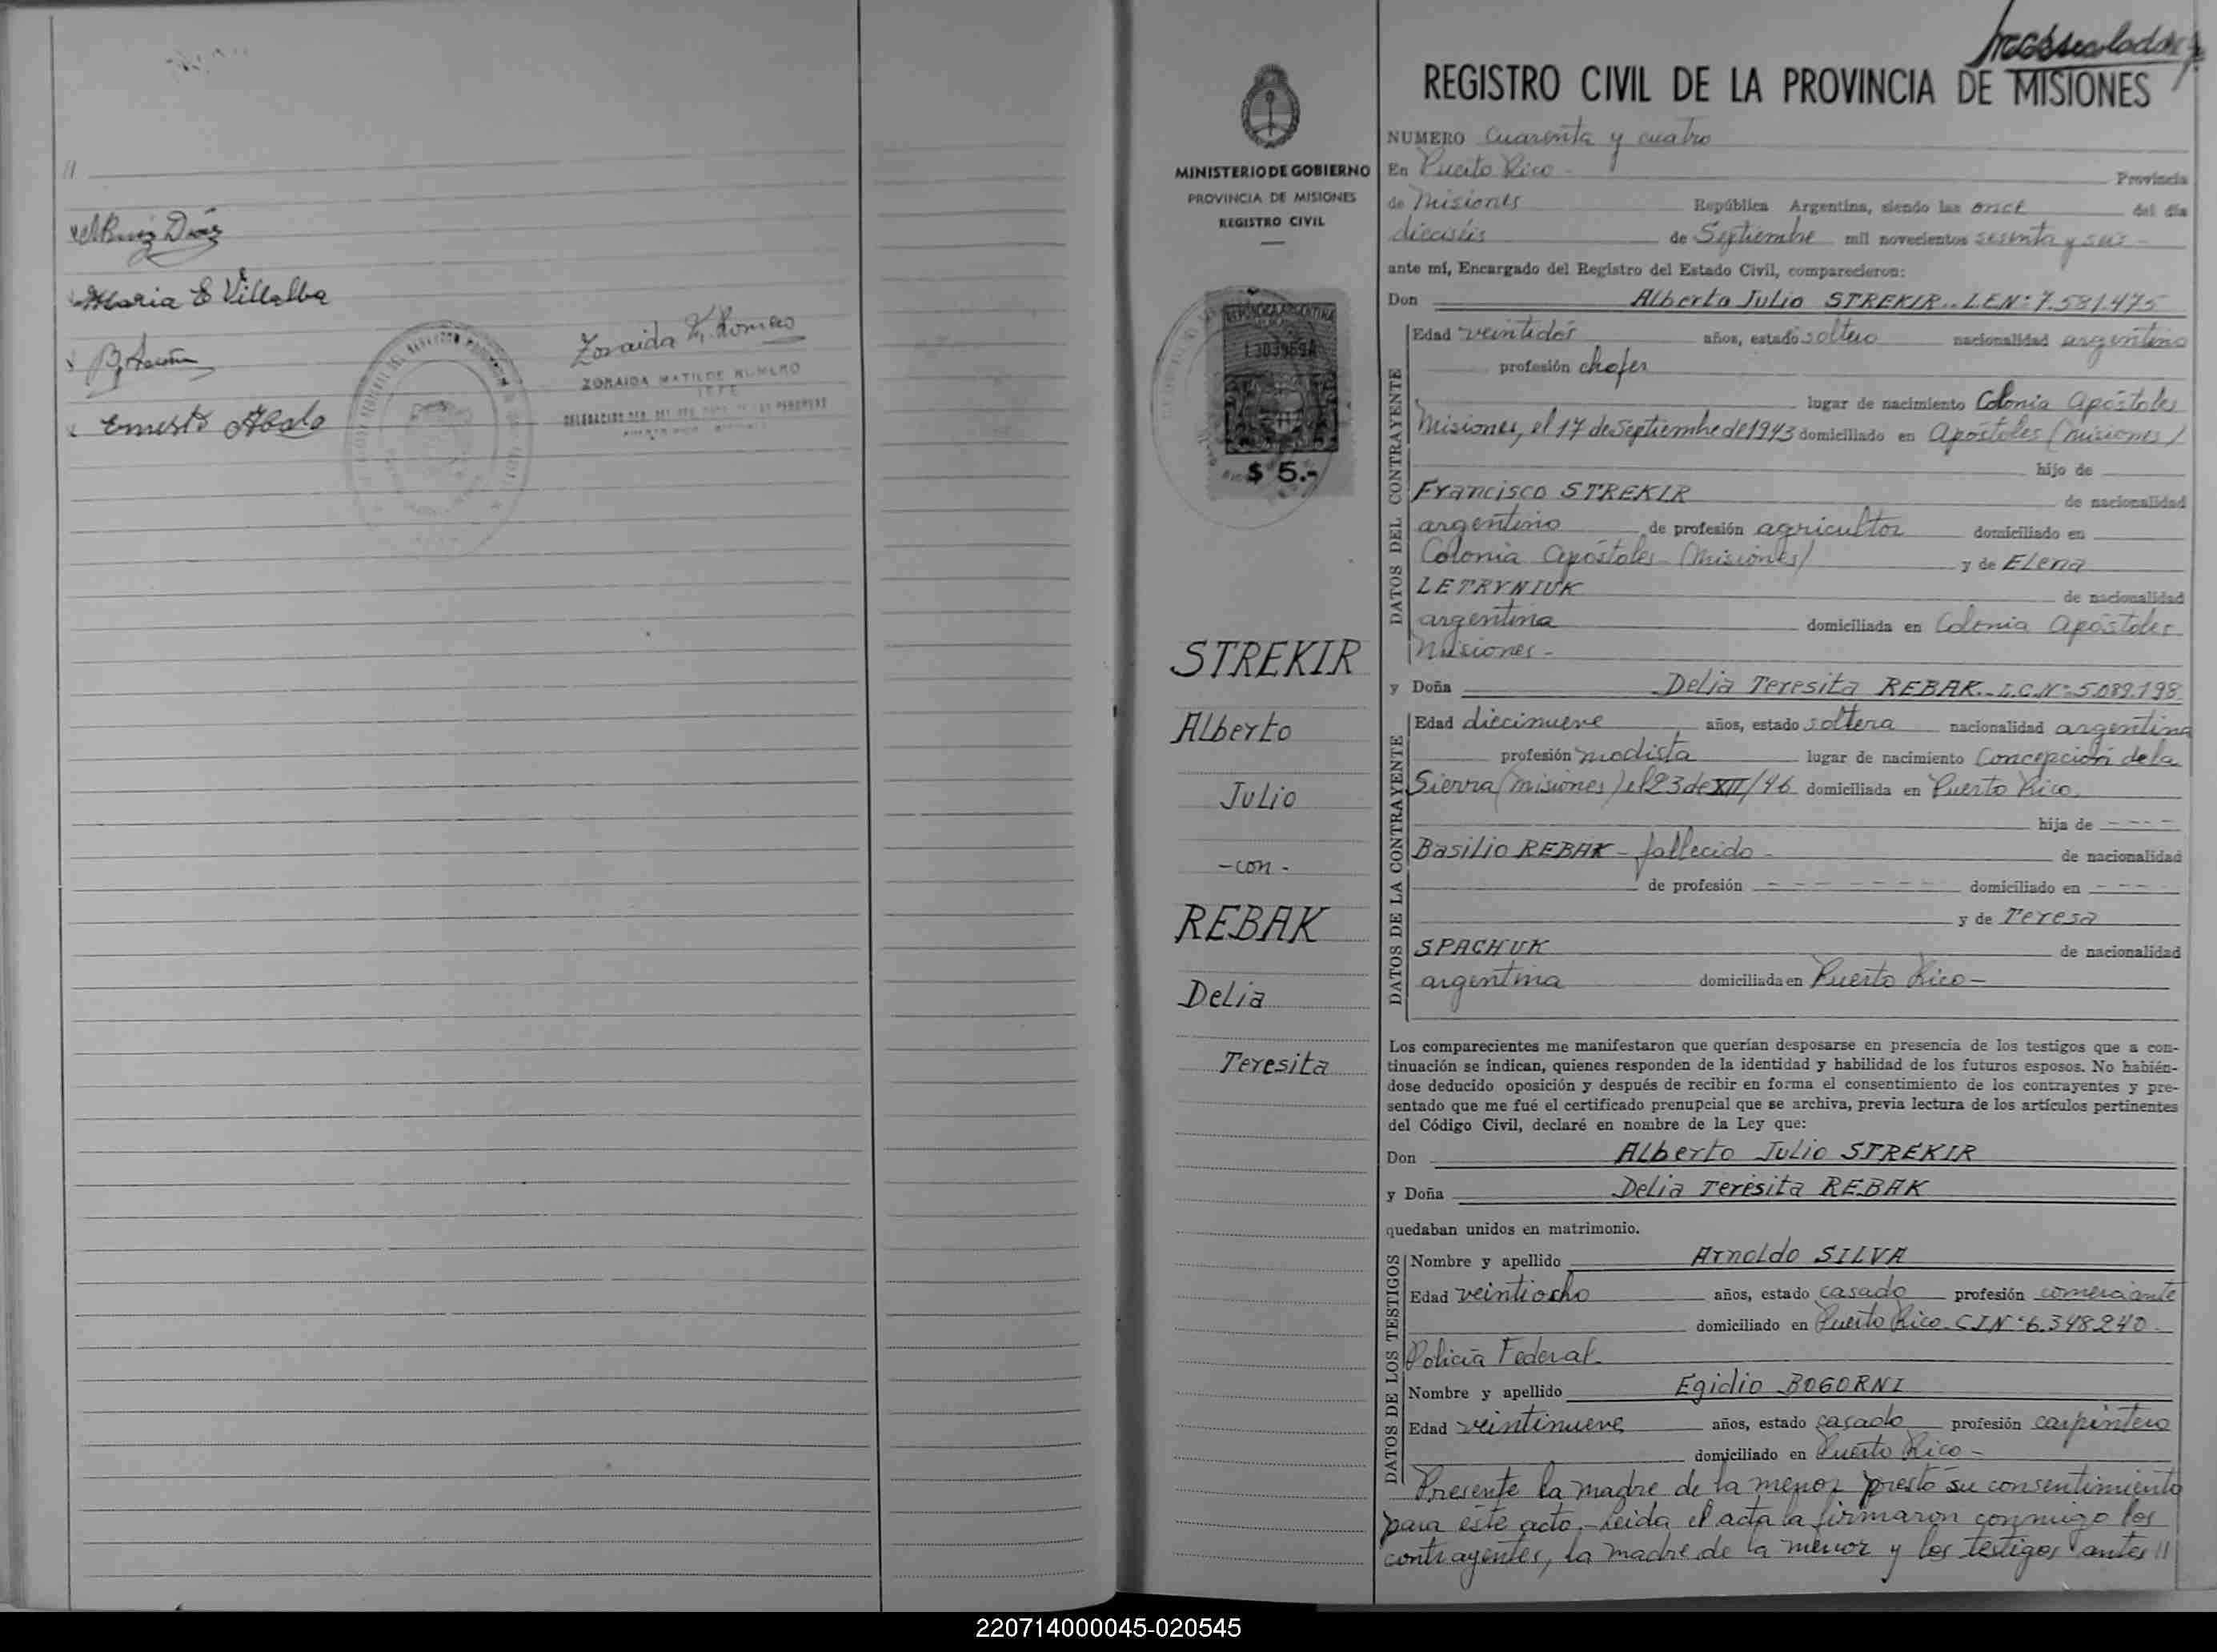 //
Maria E Villalba
Ernesto
Zoraida M. Romero
ZORAIDA MATILDE ROMERO
JEFE
MINISTERIO DE GOBIERNO
PROVINCIA DE MISIONES
REGISTRO CIVIL
REPUBLICA ARGENTINA
$ 5.-
STREKIR
Alberto
Julio
-con-
REBAK
Delia
Teresita
REGISTRO CIVIL DE LA PROVINCIA DE MISIONES
NUMERO cuarenta y cuatro
En Puerto Rico - Provincia
de Misiones República Argentina, siendo las once del día
dieciséis de Septiembre mil novecientos sesenta y seis -
ante mí, Encargado del Registro del Estado Civil, comparecieron:
Don Alberto Julio STREKIR.. L.E.Nº 7.581.475
DATOS DEL CONTRAYENTE
Edad veintidós años, estado soltero nacionalidad argentino
profesión chofer
lugar de nacimiento Colonia Apóstoles
Misiones, el 17 de Septiembre de 1943 domiciliado en Apóstoles (Misiones)
hijo de
Francisco STREKIR de nacionalidad
argentino de profesión agricultor domiciliado en
Colonia Apóstoles (Misiones) y de Elena
LETRYNIUK de nacionalidad
argentina domiciliada en Colonia Apóstoles
Misiones -
y Doña Delia Teresita REBAK.. L.C.Nº 5.089.198
DATOS DE LA CONTRAYENTE
Edad diecinueve años, estado soltera nacionalidad argentina
profesión modista lugar de nacimiento Concepción de la
Sierra (Misiones) el 23 de XII/46 domiciliada en Puerto Rico.
hija de - - - -
Basilio REBAK - fallecido - de nacionalidad
de profesión - - - - - - - domiciliado en - - - -
y de Teresa
SPACHUK de nacionalidad
argentina domiciliada en Puerto Rico -
Los comparecientes me manifestaron que querían desposarse en presencia de los testigos que a con-
tinuación se indican, quienes responden de la identidad y habilidad de los futuros esposos. No habién-
dose deducido oposición y después de recibir en forma el consentimiento de los contrayentes y pre-
sentado que me fué el certificado prenupcial que se archiva, previa lectura de los artículos pertinentes
del Código Civil, declaré en nombre de la Ley que:
Don Alberto Julio STREKIR
y Doña Delia Teresita REBAK
quedaban unidos en matrimonio.
DATOS DE LOS TESTIGOS
Nombre y apellido Arnoldo SILVA
Edad veintiocho años, estado casado profesión comerciante
domiciliado en Puerto Rico. C.I.Nº 6.348.240.
Policía Federal.
Nombre y apellido Egidio BOGORNI
Edad veintinueve años, estado casado profesión carpintero
domiciliado en Puerto Rico -
Presente la madre de la menor prestó su consentimiento
para este acto.- Leida el acta la firmaron conmigo los
contrayentes, la madre de la menor y los testigos antes //
220714000045-020545